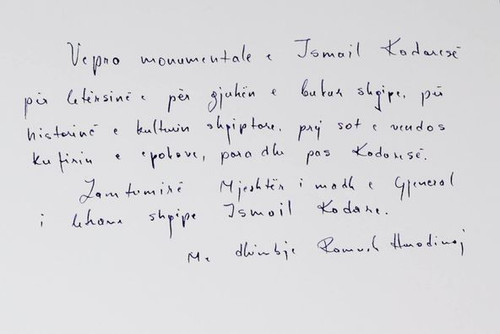 Vepra monumentale e Ismail Kadaresë
për letërsinë e për gjuhën e bukur shqipe, për
historinë e kulturën shqiptare, prej sot e vendos
kufirin e epokave, para dhe pas Kadaresë.
Lamtumirë Mjeshtër i madh e Gjeneral
i shqipe Ismail Kadare.
Me dhimbje Ramush Haradinaj